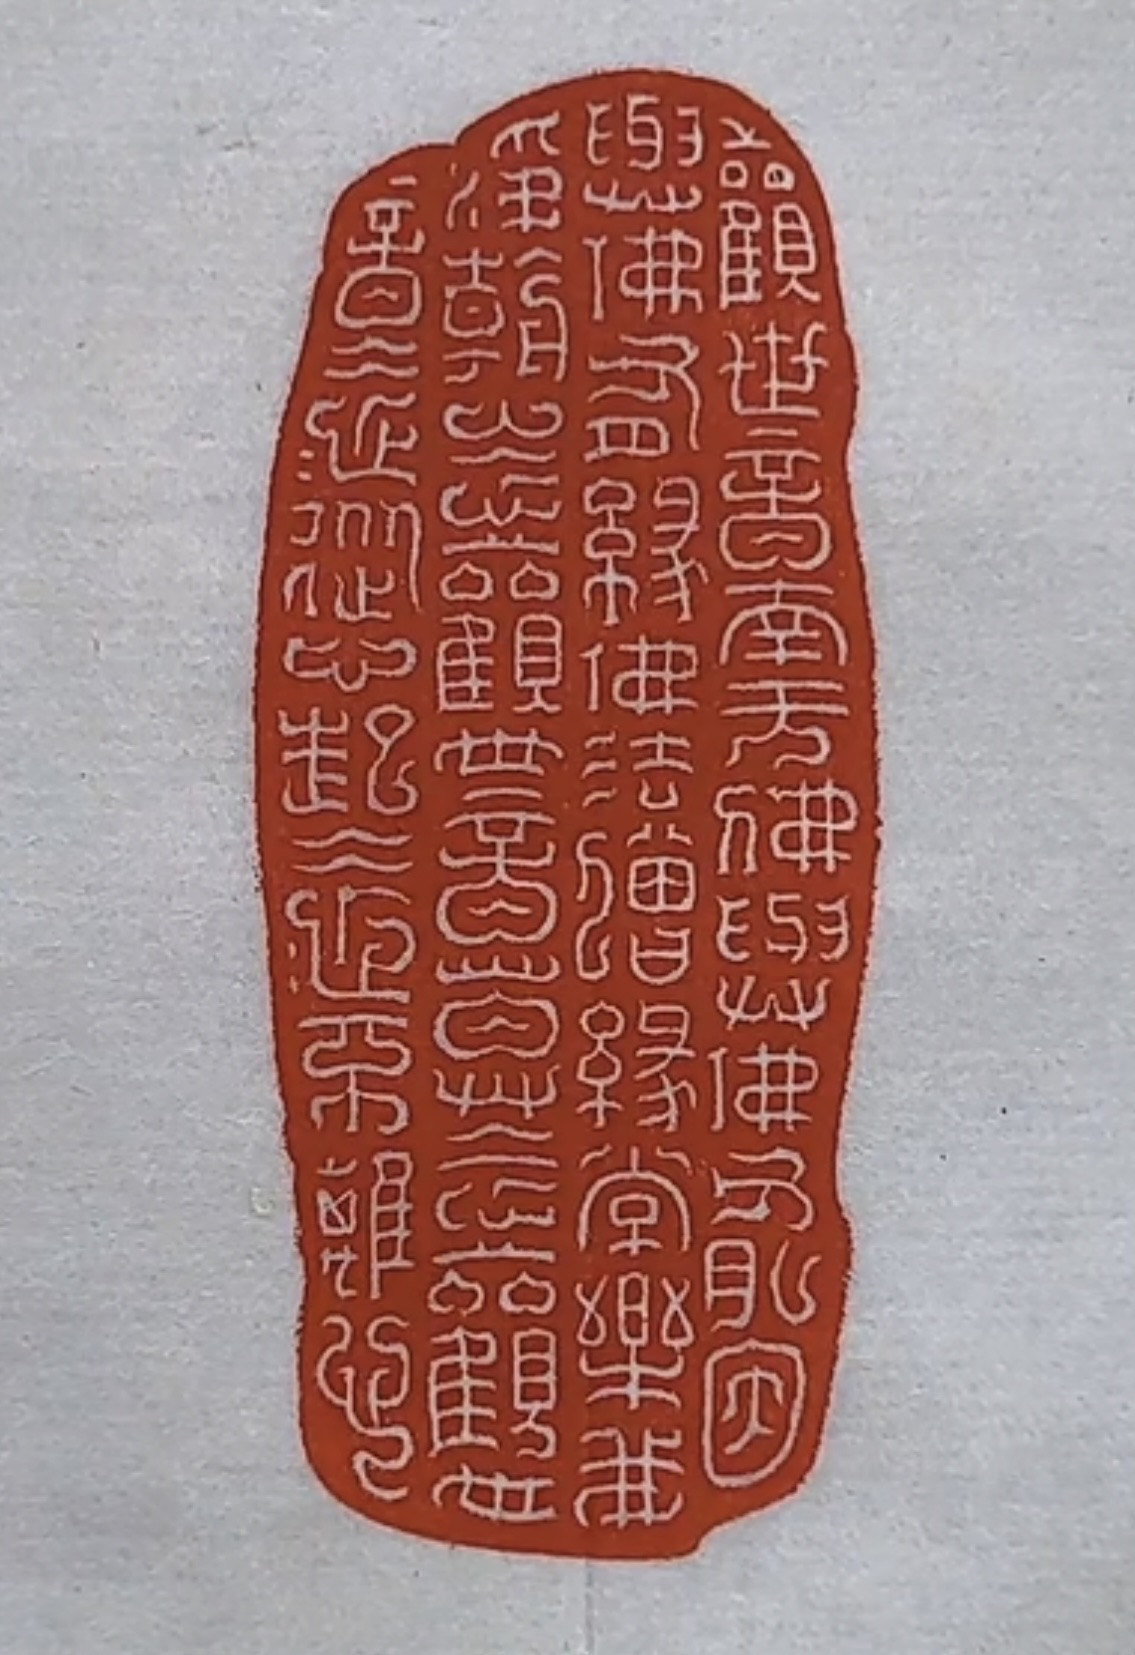 觀世音南无佛與佛有因
與佛有緣佛法僧緣常樂我
淨朝念觀世音暮念觀世
音念念從心起念念不離心